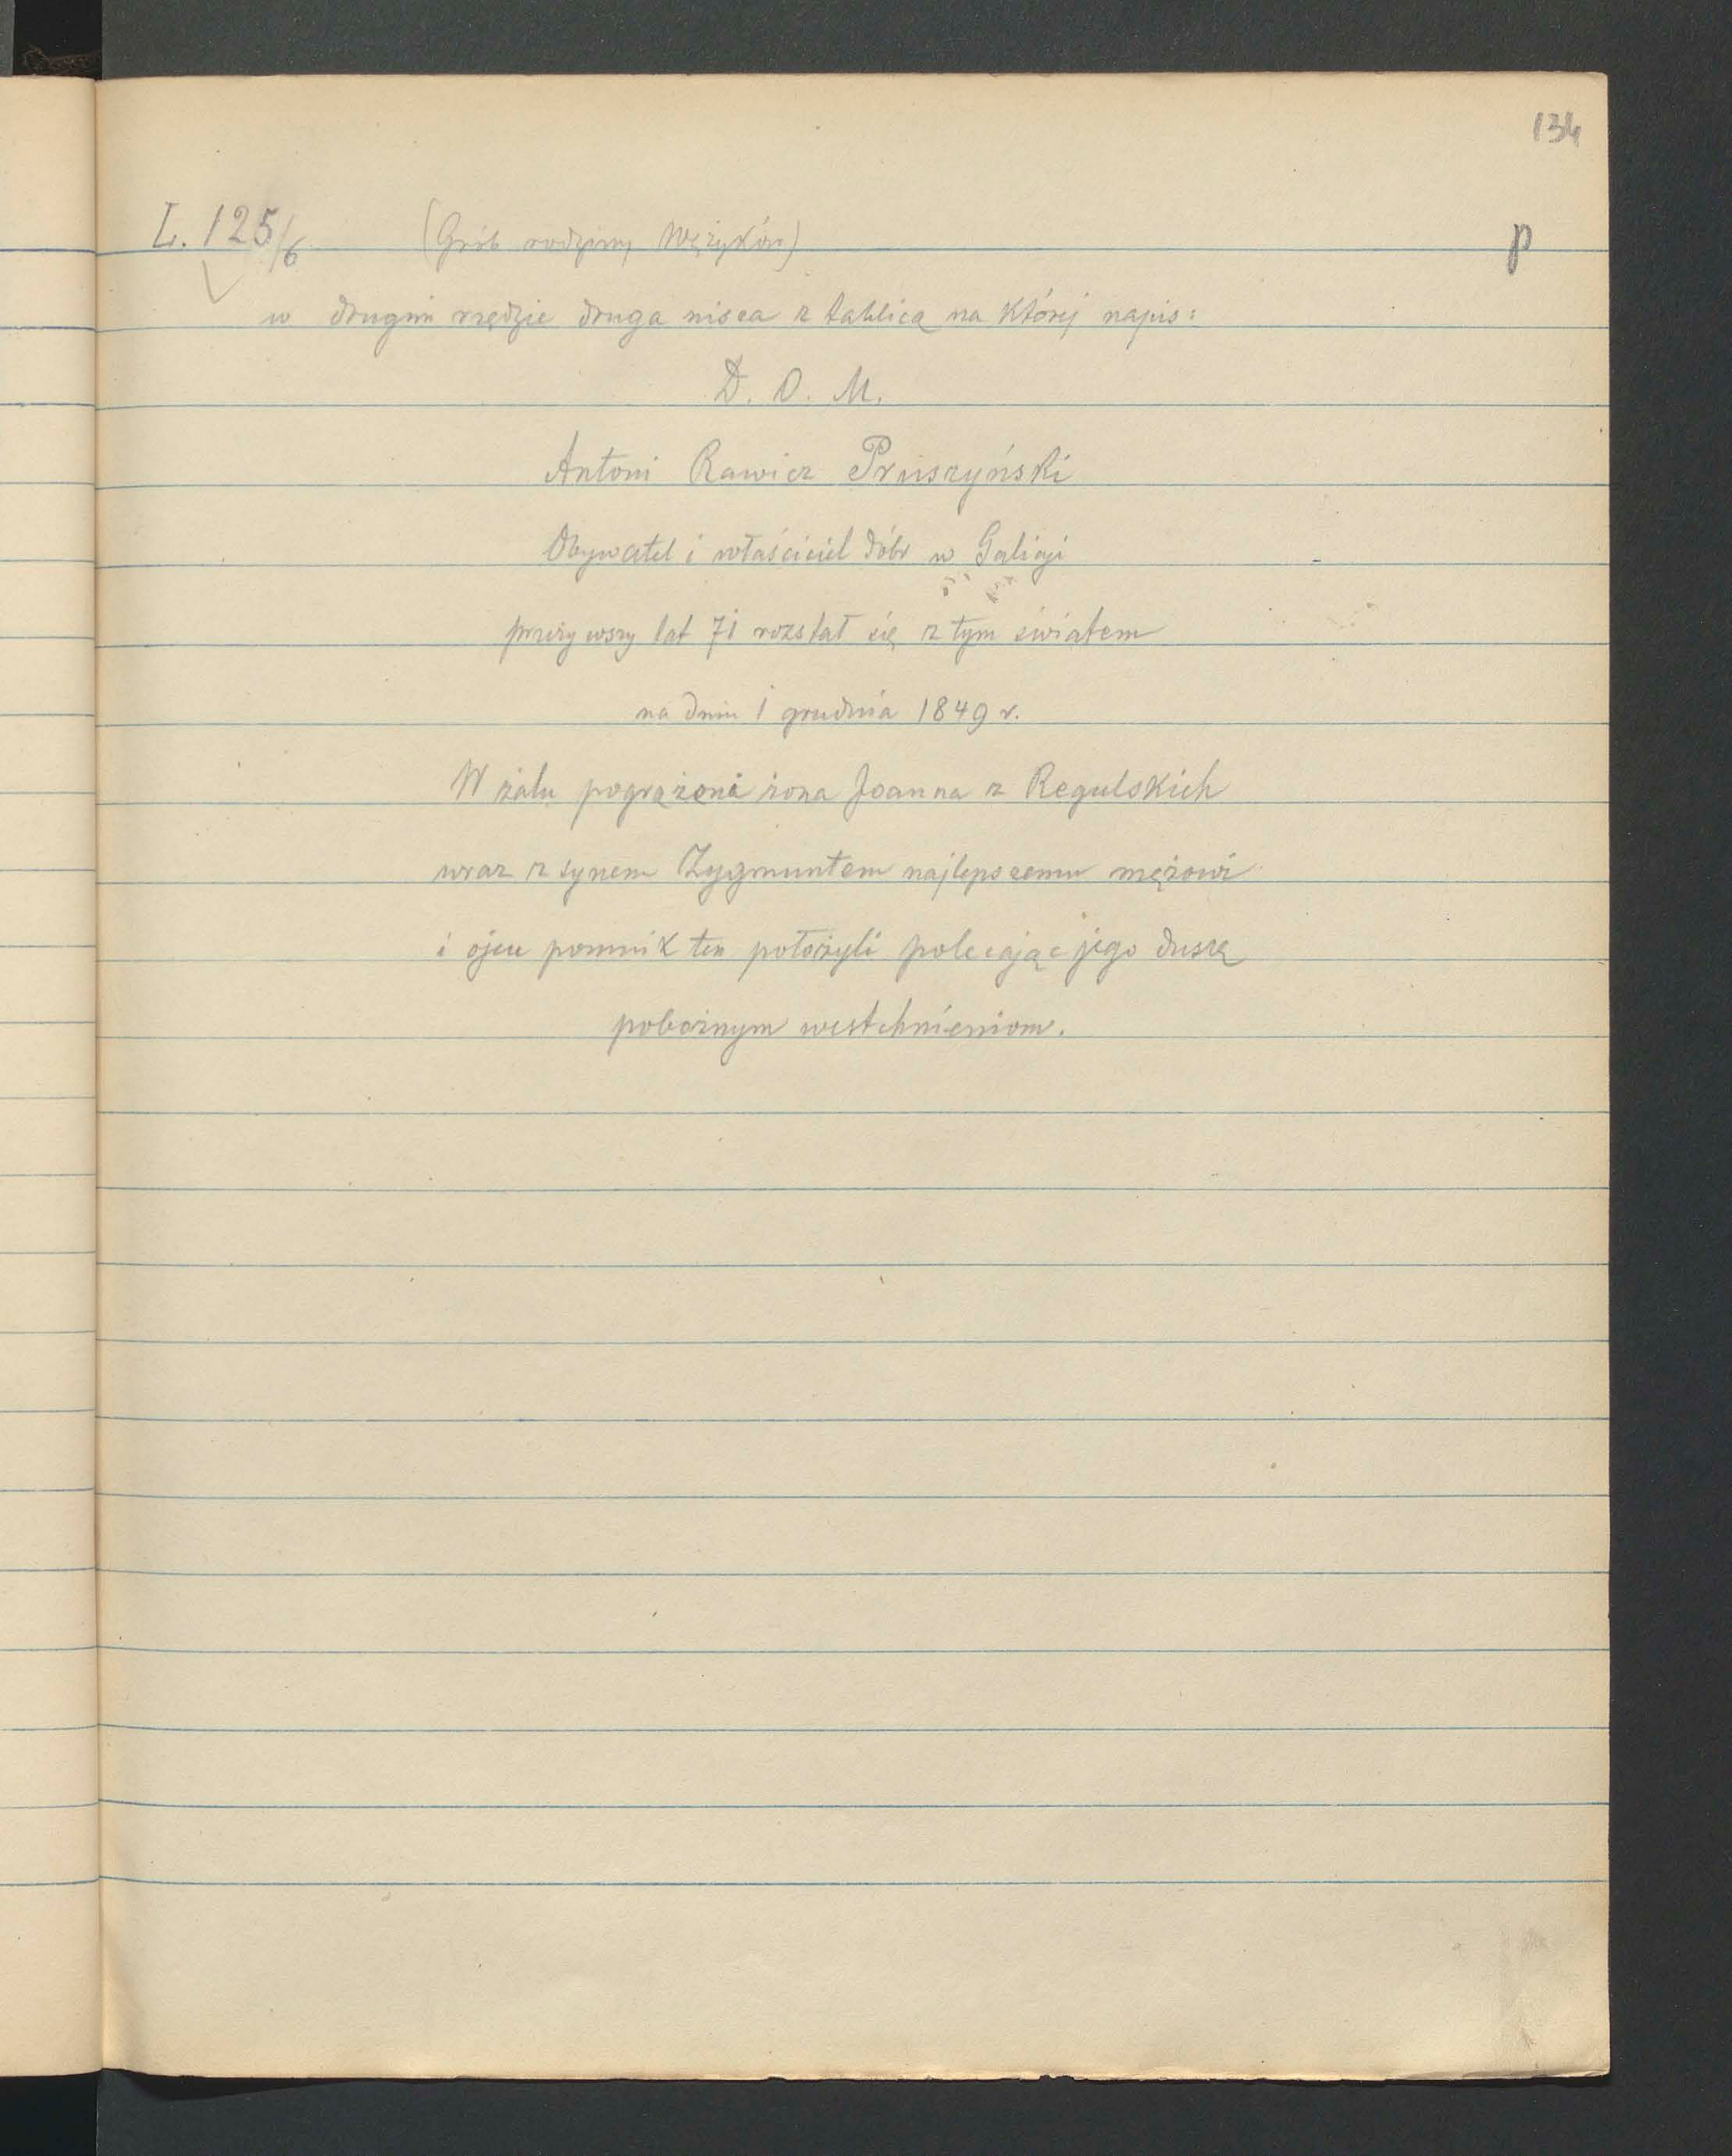 134
L. 125/6 (Grób rodziny Wężyków) p
w drugim rzędzie druga nisza z tablicą na której napis:
D. O. M.
Antoni Rawicz Pruszyński
Obywatel i właściciel dóbr w Galicyi
przeżywszy lat 71 rozstał się z tym światem
na dniu 1 grudnia 1849 r.
W żalu pogrążona żona Joanna z Regulskich
wraz z synem Zygmuntem najlepszemu mężowi
i ojcu pomnik ten położyli polecając jego duszę
pobożnym westchnieniom.